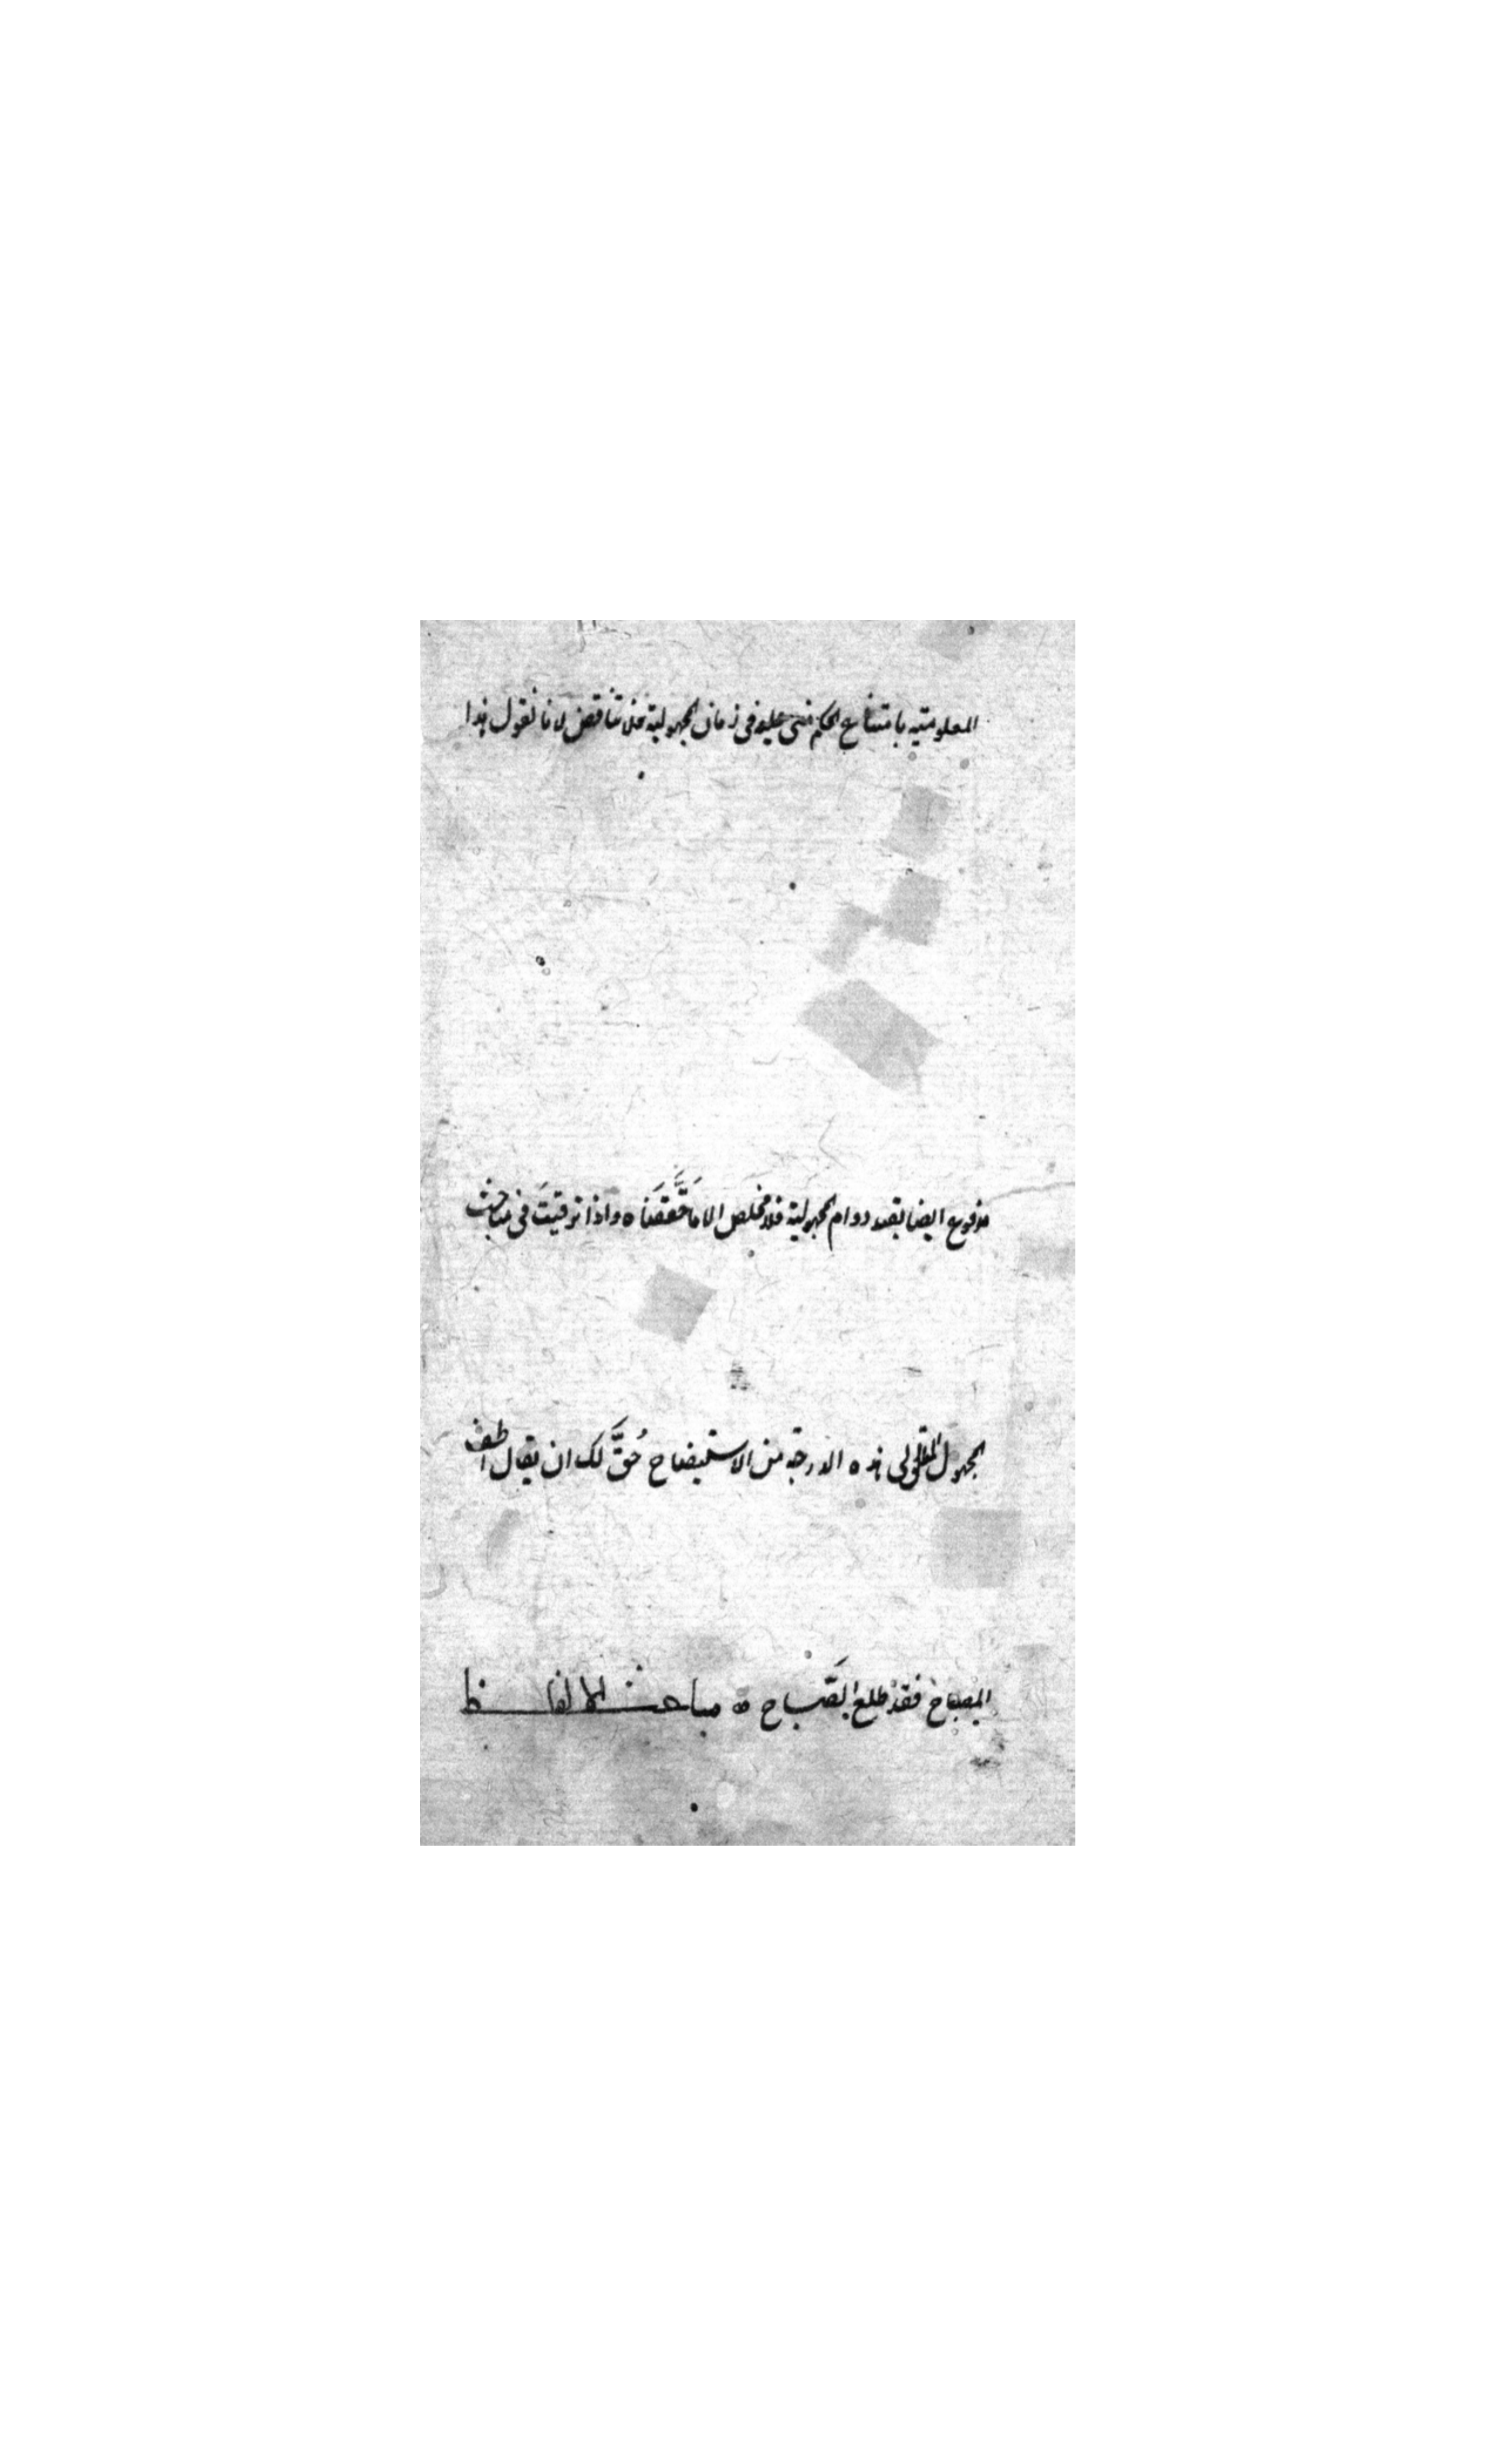 المعلومتيه بامتناع الحكم عليه فى زمان المجهولية فلا تناقض لانا نقول هذا
مدفوع ايضا بقيد دوام المجهولية فلا مخلص الا ما حَقَّقنَاه واذا ترقيتَ فى مباحث
المجهول المطلق الى هذه الدرجة من الاستيضاح حُقَّ لك ان يقال اطف
المصباح فقد طلع الصَّباح ه مباحث الالفاظ